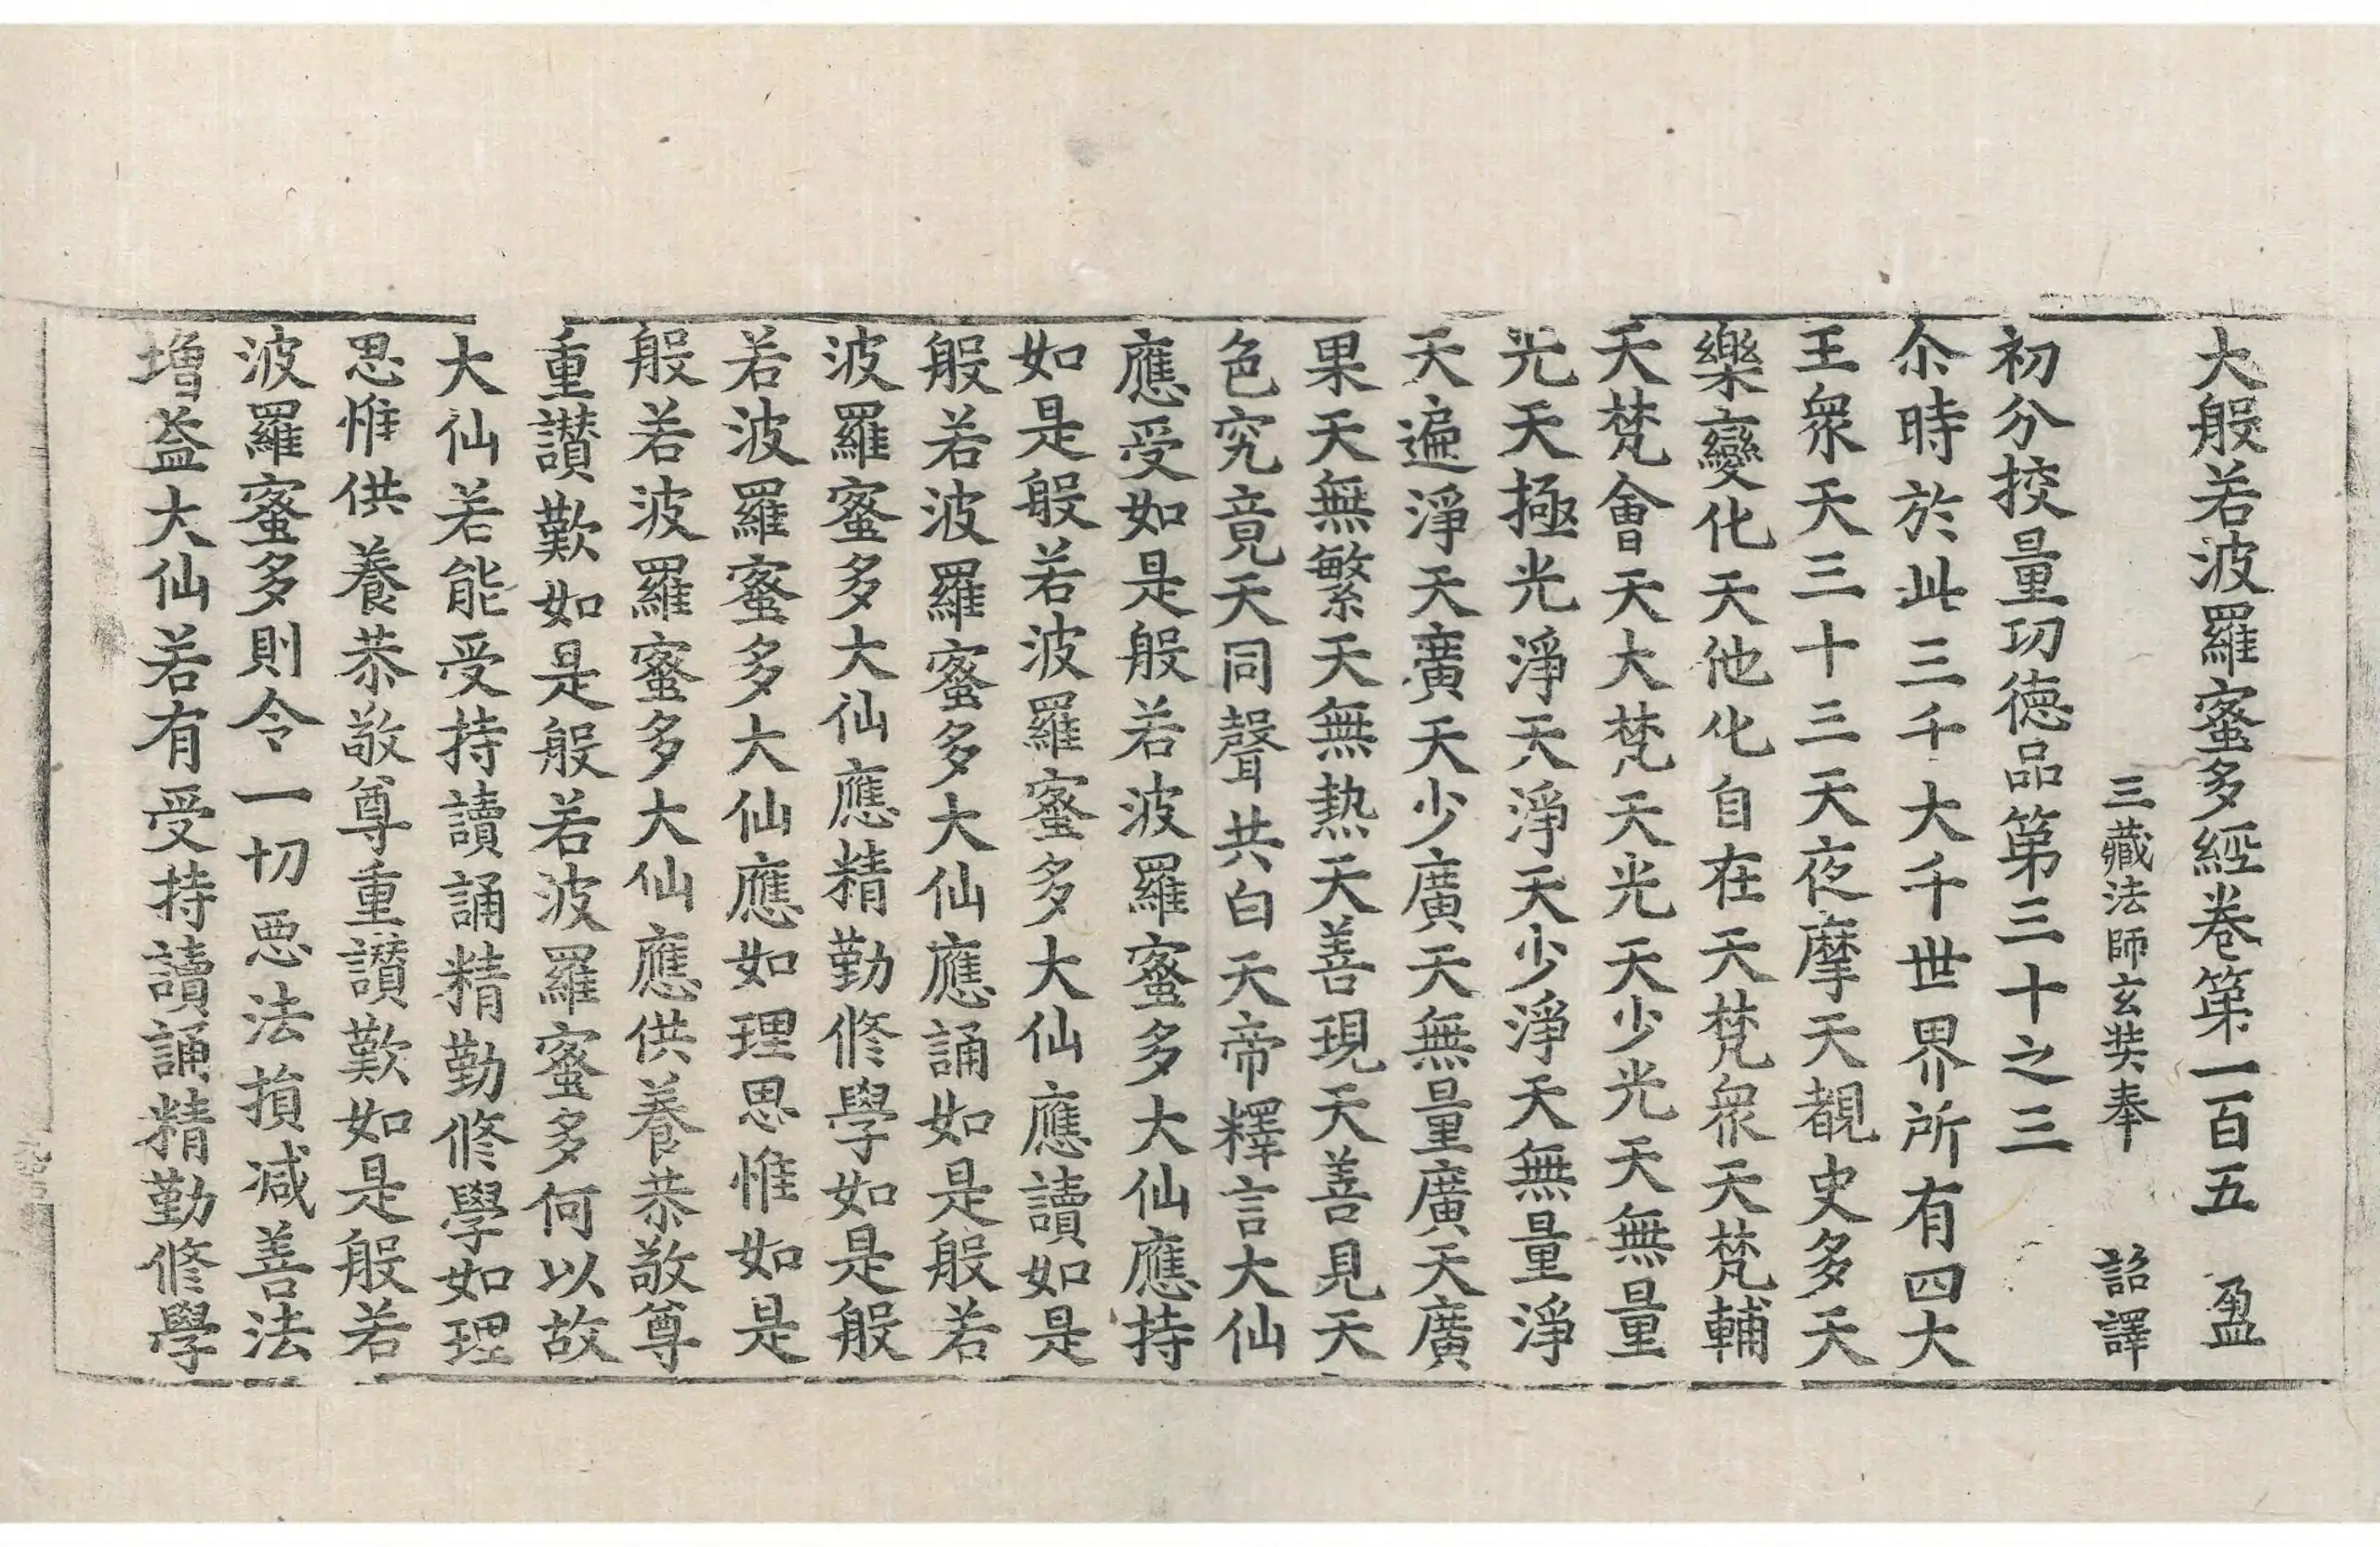 大般若波羅蜜多經卷第一百五 盈
三藏法師玄奘奉 詔譯
初分挍量功德品第三十之三
尒時於此三千大千世界所有四大
王衆天三十三天夜摩天覩史多天
樂變化天他化自在天梵衆天梵輔
天梵會天大梵天光天少光天無量
光天極光淨天淨天少淨天無量淨
天遍淨天廣天少廣天無量廣天廣
果天無繁天無熱天善現天善見天
色究竟天同聲共白天帝釋言大仙
應受如是般若波羅蜜多大仙應持
如是般若波羅蜜多大仙應讀如是
般若波羅蜜多大仙應誦如是般若
波羅蜜多大仙應精勤修學如是般
若波羅蜜多大仙應如理思惟如是
般若波羅蜜多大仙應供養恭敬尊
重讃歎如是般若波羅蜜多何以故
大仙若能受持讀誦精勤修學如理
思惟供養恭敬尊重讃歎如是般若
波羅蜜多則令一切惡法損减善法
増益大仙若有受持讀誦精勤修學